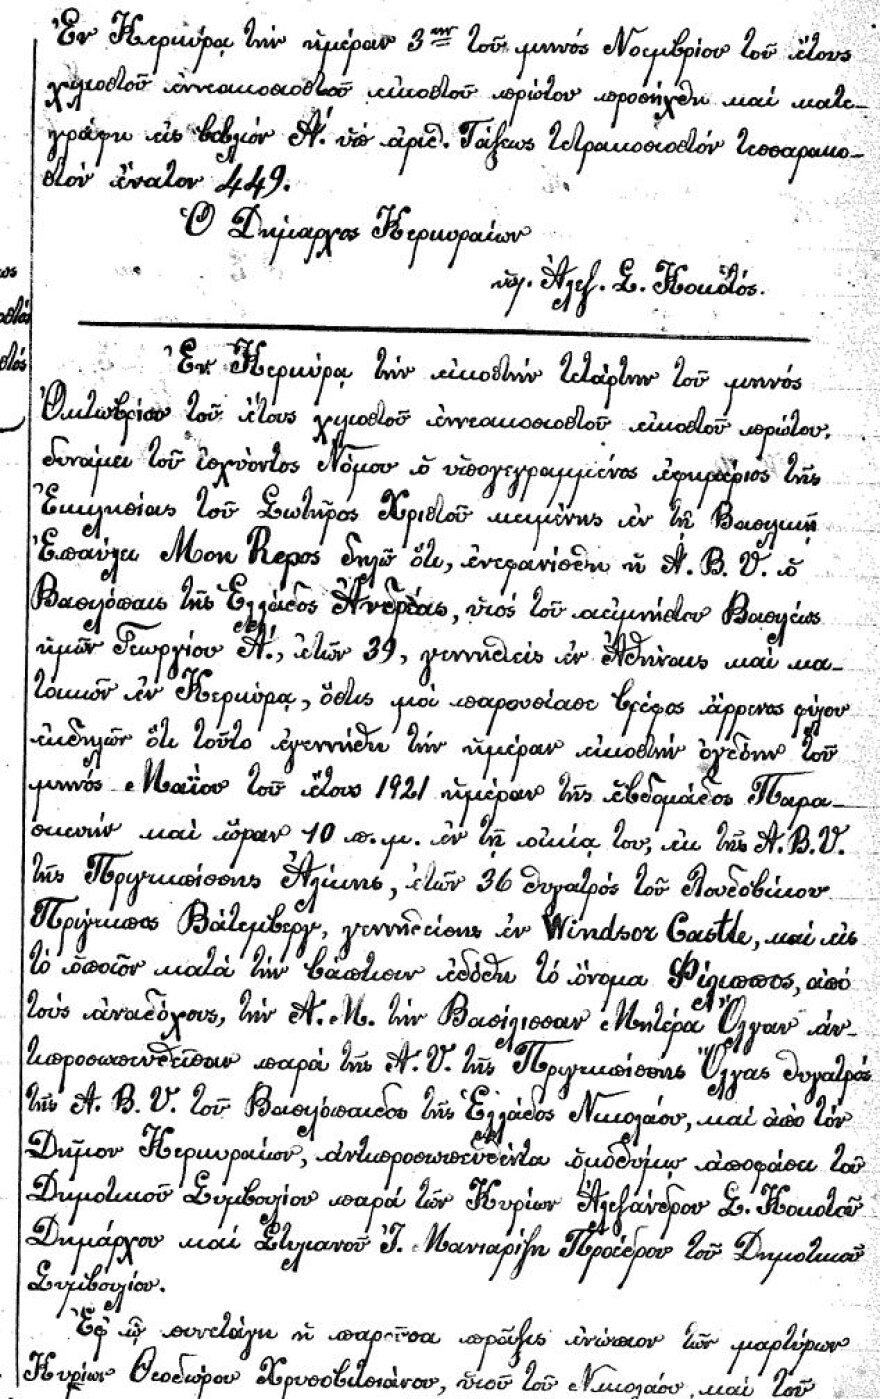 Ἐν Κερκύρᾳ τὴν ἡμέραν 3ην τοῦ μηνός Νοεμβρίου τοῦ ἔτους
χιλιοστοῦ ἐννεακοσιοστοῦ εἰκοστοῦ πρώτου προσήχθη καὶ κατε-
γράφη εἰς βιβλίον Α΄. ὑπ' ἀριθ. Τάξεως τετρακοσιοστόν τεσσαρακο-
στόν ἔνατον 449.
Ὁ Δήμαρχος Κερκυραίων
ὑπ. Ἀλεξ. Σ. Κοκοτός.
ως
οστός
στός
Ἐν Κερκύρᾳ τὴν εἰκοστήν τετάρτην τοῦ μηνός
Ὀκτωβρίου τοῦ ἔτους χιλιοστοῦ ἐννεακοσιοστοῦ εἰκοστοῦ πρώτου,
δυνάμει τοῦ ἰσχύοντος Νόμου ὁ ὑπογεγραμμένος ἐφημέριος τῆς
Ἐκκλησίας τοῦ Σωτῆρος Χριστοῦ κειμένης ἐν τῇ Βασιλικῇ
Ἐπαύλει Mon Repos δηλῶ ὅτι, ἐνεφανίσθη ἡ Α. Β. Υ. ὁ
Βασιλόπαις τῆς Ἑλλάδος Ἀνδρέας, υἱός τοῦ ἀειμνήστου Βασιλέως
ἡμῶν Γεωργίου Α΄., ἐτῶν 39, γεννηθείς ἐν Ἀθήναις καὶ κα-
τοικῶν ἐν Κερκύρᾳ, ὅστις μοί παρουσίασε βρέφος ἄρρενος φύλου
ἐκδηλῶν ὅτι τοῦτο ἐγεννήθη τὴν ἡμέραν εἰκοστήν ὀγδόην τοῦ
μηνός Μαΐου τοῦ ἔτους 1921 ἡμέραν τῆς ἑβδομάδος Παρα-
σκευήν καὶ ὥραν 10 π.μ. ἐν τῇ οἰκίᾳ του, ἐκ τῆς Α.Β.Υ.
τῆς Πριγκιπίσσης Ἀλίκης, ἐτῶν 36 θυγατρός τοῦ Λουδοβίκου
Πρίγκιπος Βάτεμβεργ, γεννηθείσης ἐν Windsor Castle, καὶ εἰς
τό ὁποῖον κατά τὴν βάπτισιν ἐδόθη τό ὄνομα Φίλιππος, ἀπό
τούς ἀναδόχους, τὴν Α. Μ. τὴν Βασίλισσαν Μητέρα Ὄλγαν ἀν-
τιπροσωπευθεῖσαν παρά τῆς Α. Υ. τῆς Πριγκιπίσσης Ὄλγας θυγατρός
τῆς Α. Β. Υ. τοῦ Βασιλόπαιδος τῆς Ἑλλάδος Νικολάου, καί ἀπό τόν
Δῆμον Κερκυραίων, ἀντιπροσωπευθέντα ὁμοθύμῳ ἀποφάσει τοῦ
Δημοτικοῦ Συμβουλίου παρά τῶν Κυρίων Ἀλεξάνδρου Σ. Κοκοτοῦ
Δημάρχου καὶ Στυλιανοῦ Ἰ. Μανιαρίζη Προέδρου τοῦ Δημοτικοῦ
Συμβουλίου.
Ἐφ' ᾧ συνετάγη ἡ παροῦσα πρᾶξις ἐνώπιον τῶν μαρτύρων
Κυρίων Θεοδώρου Χρυσοβιτσιάνου, υἱοῦ τοῦ Νικολάου, καὶ τοῦ